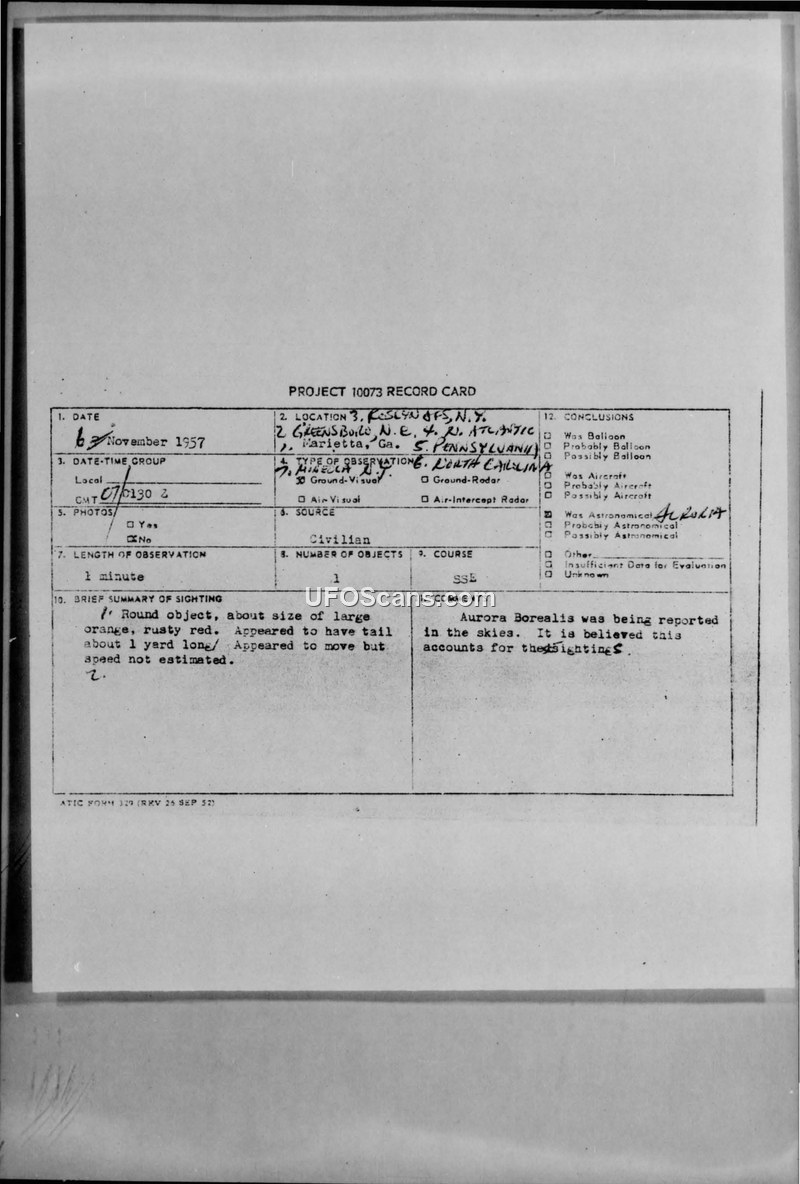 PROJECT 10073 RECORD CARD
1. DATE
6 November 1957
2. LOCATION 3. ROSLYN AFS, N.Y.
2 GREENSBORO, N.C. 4. N. ATLANTIC
1. Marietta, Ga. 5. PENNSYLVANIA
12. CONCLUSIONS
Was Balloon
Probably Balloon
Possibly Balloon
Was Aircraft
Probably Aircraft
Possibly Aircraft
Was Astronomical
Probably Astronomical
Possibly Astronomical
Other
Insufficient Data for Evaluation
Unknown
3. DATE-TIME GROUP
Local
GMT 07/0130 Z
4. TYPE OF OBSERVATION 6. NORTH CAROLINA
7. N.Y.
Ground-Visual
Ground-Radar
Air-Visual
Air-Intercept Radar
5. PHOTOS
Yes
No
6. SOURCE
Civilian
7. LENGTH OF OBSERVATION
1 minute
8. NUMBER OF OBJECTS
1
9. COURSE
SSE
10. BRIEF SUMMARY OF SIGHTING
1. Round object, about size of large
orange, rusty red. Appeared to have tail
about 1 yard long/ Appeared to move but
speed not estimated.
2.
11. COMMENTS
Aurora Borealis was being reported
in the skies. It is believed this
accounts for the sightings.
ATIC FORM 329 (REV 26 SEP 52)
UFOScans.com